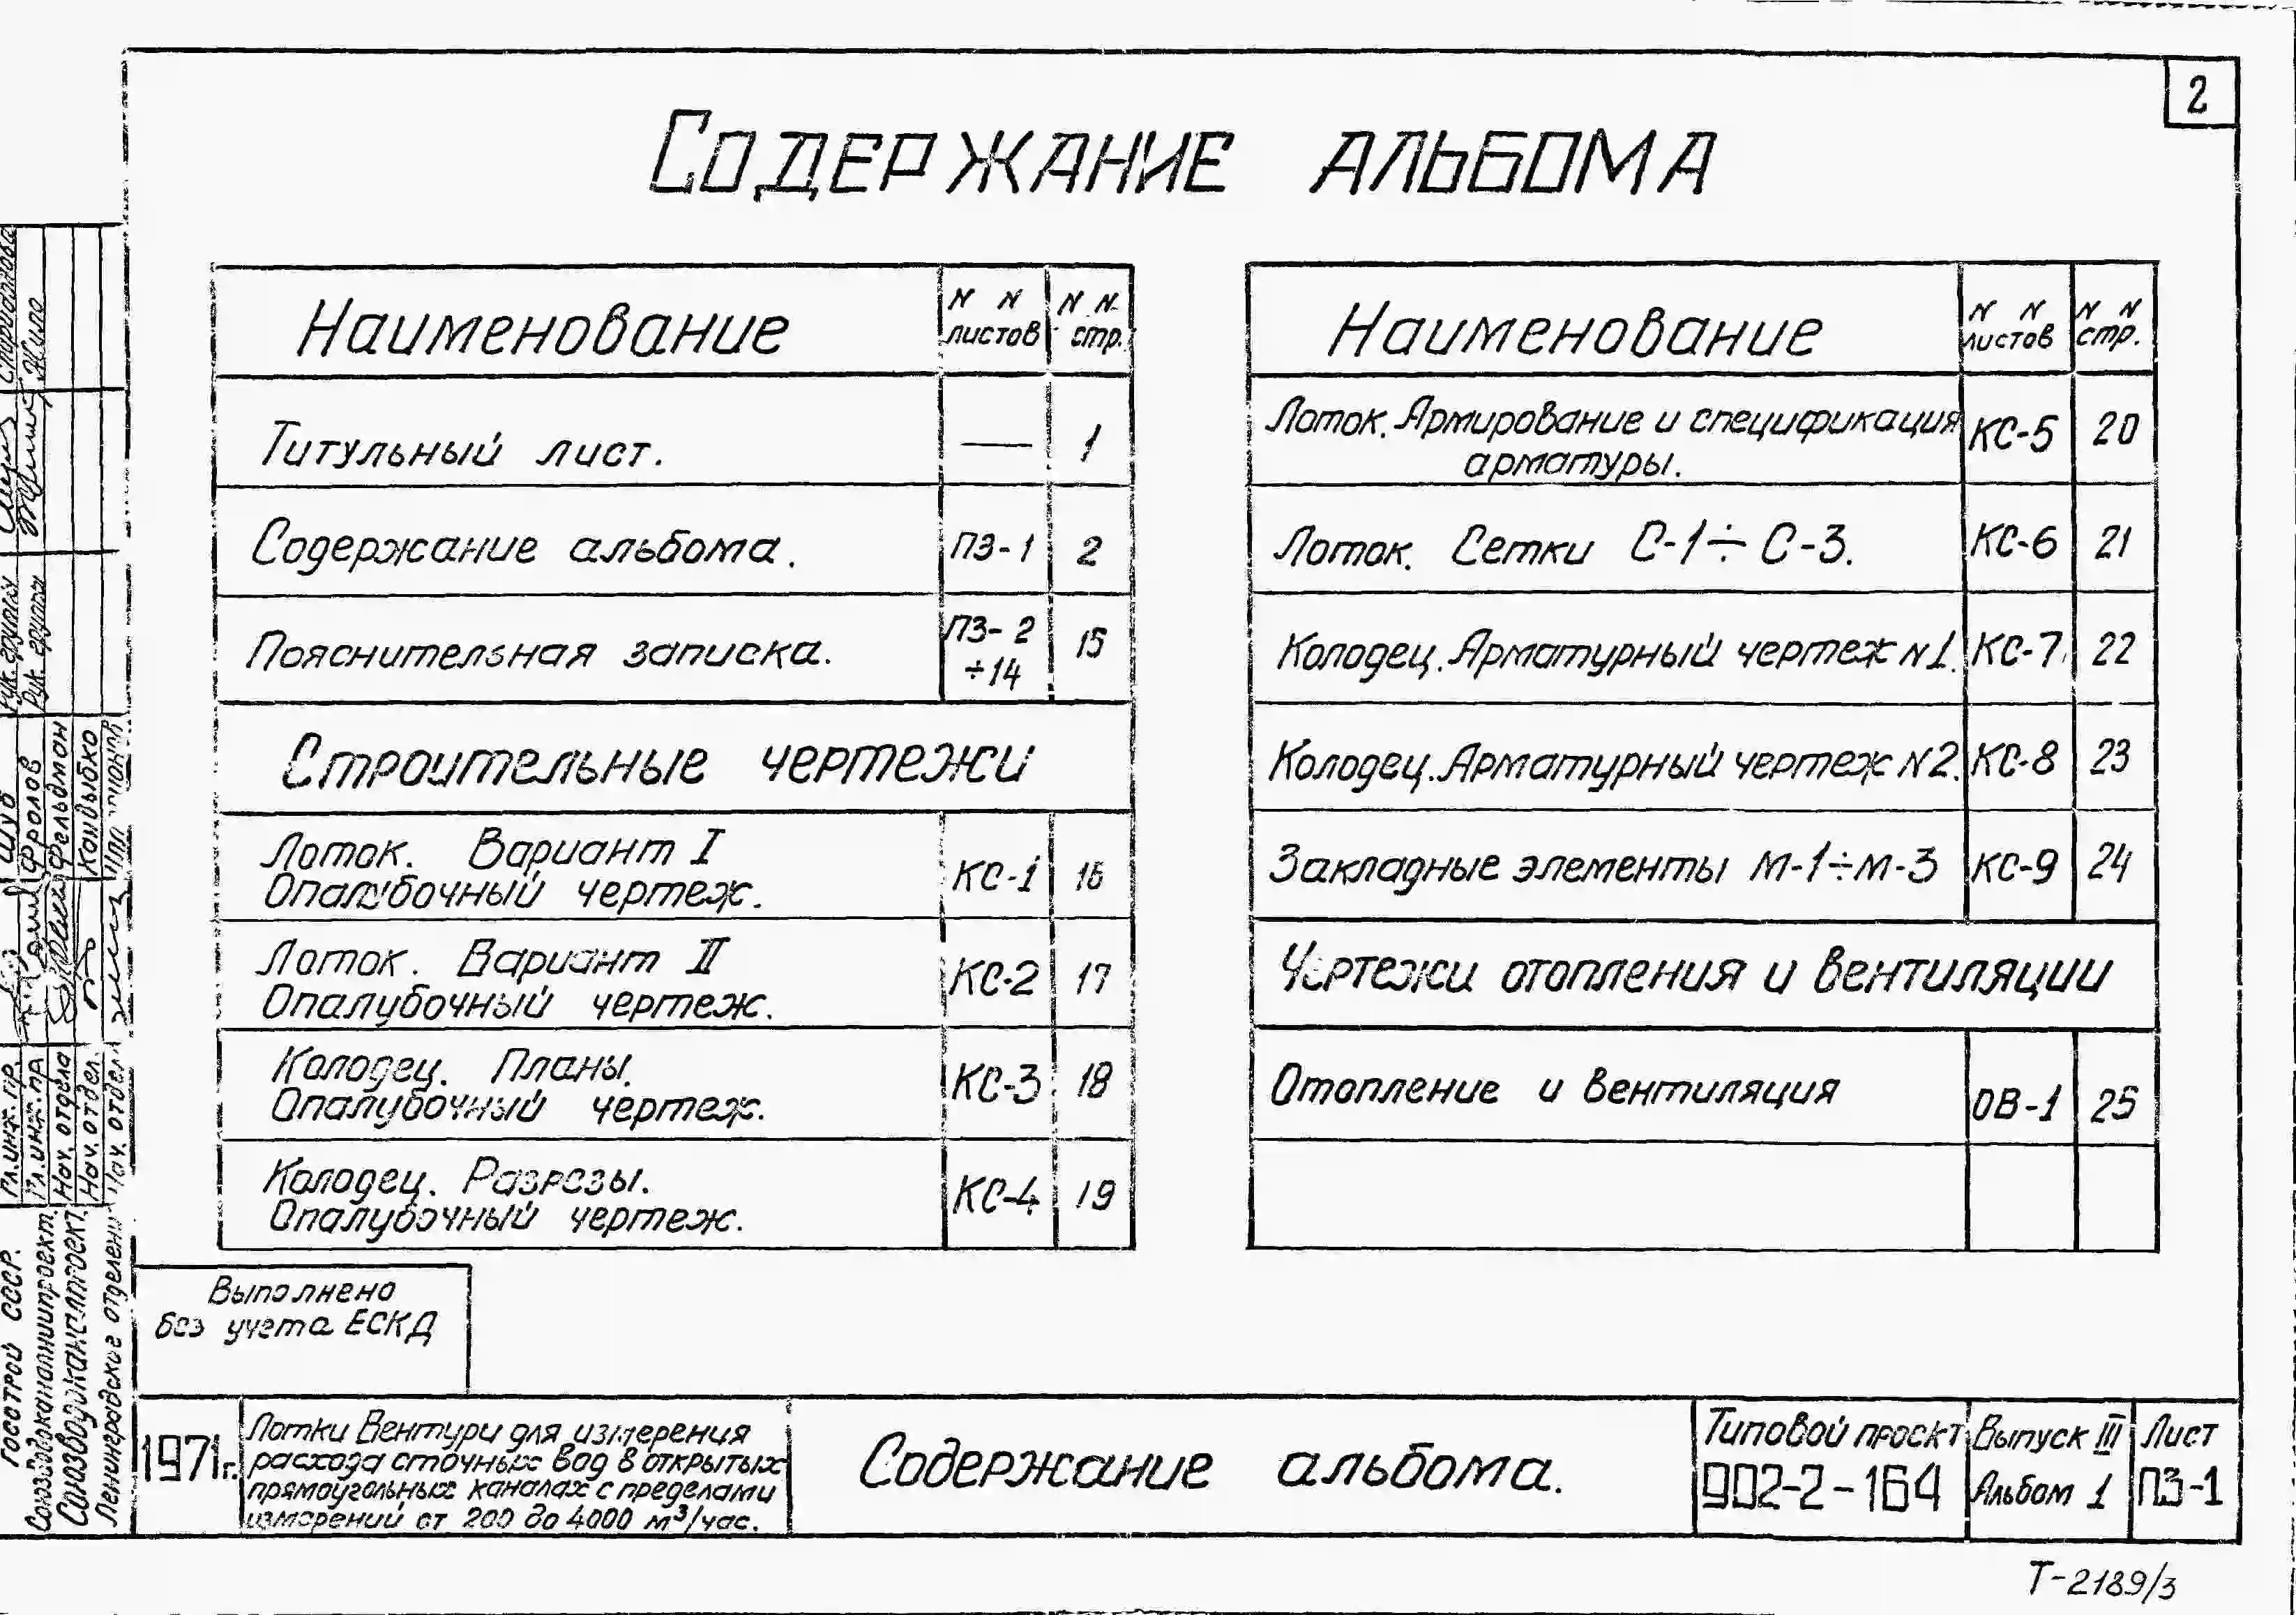 2
СОДЕРЖАНИЕ АЛЬБОМА
Наименование
N N листов
N N стр.
Титульный лист. — 1
Содержание альбома. ПЗ-1 2
Пояснительная записка. ПЗ-2 ÷14 15
Строительные чертежи
Лоток. Вариант I
Опалубочный чертеж. КС-1 16
Лоток. Вариант II
Опалубочный чертеж. КС-2 17
Колодец. Планы.
Опалубочный чертеж. КС-3 18
Колодец. Разрезы.
Опалубочный чертеж. КС-4 19
Наименование
N N листов
N N стр.
Лоток. Армирование и спецификация
арматуры. КС-5 20
Лоток. Сетки С-1÷С-3. КС-6 21
Колодец. Арматурный чертеж N1. КС-7 22
Колодец. Арматурный чертеж N2. КС-8 23
Закладные элементы М-1÷М-3 КС-9 24
Чертежи отопления и вентиляции
Отопление и вентиляция ОВ-1 25
Выполнено
без учета ЕСКД
1971г.
Лотки Вентури для измерения
расхода сточных вод в открытых
прямоугольных каналах с пределами
измерений от 200 до 4000 м³/час.
Содержание альбома.
Типовой проект
902-2-164
Выпуск III
Альбом 1
Лист
ПЗ-1
Т-2189/3
ГОССТРОЙ СССР.
Союзводоканалниипроект.
Союзводоканалпроект.
Ленинградское отделение
Гл.инж.пр. Шуб Рук.группы
Гл.инж.пр. Фролов Рук.группы Жила
Нач. отдела Фельдман
Нач. отдел. Кандыбко
Нач. отдел.